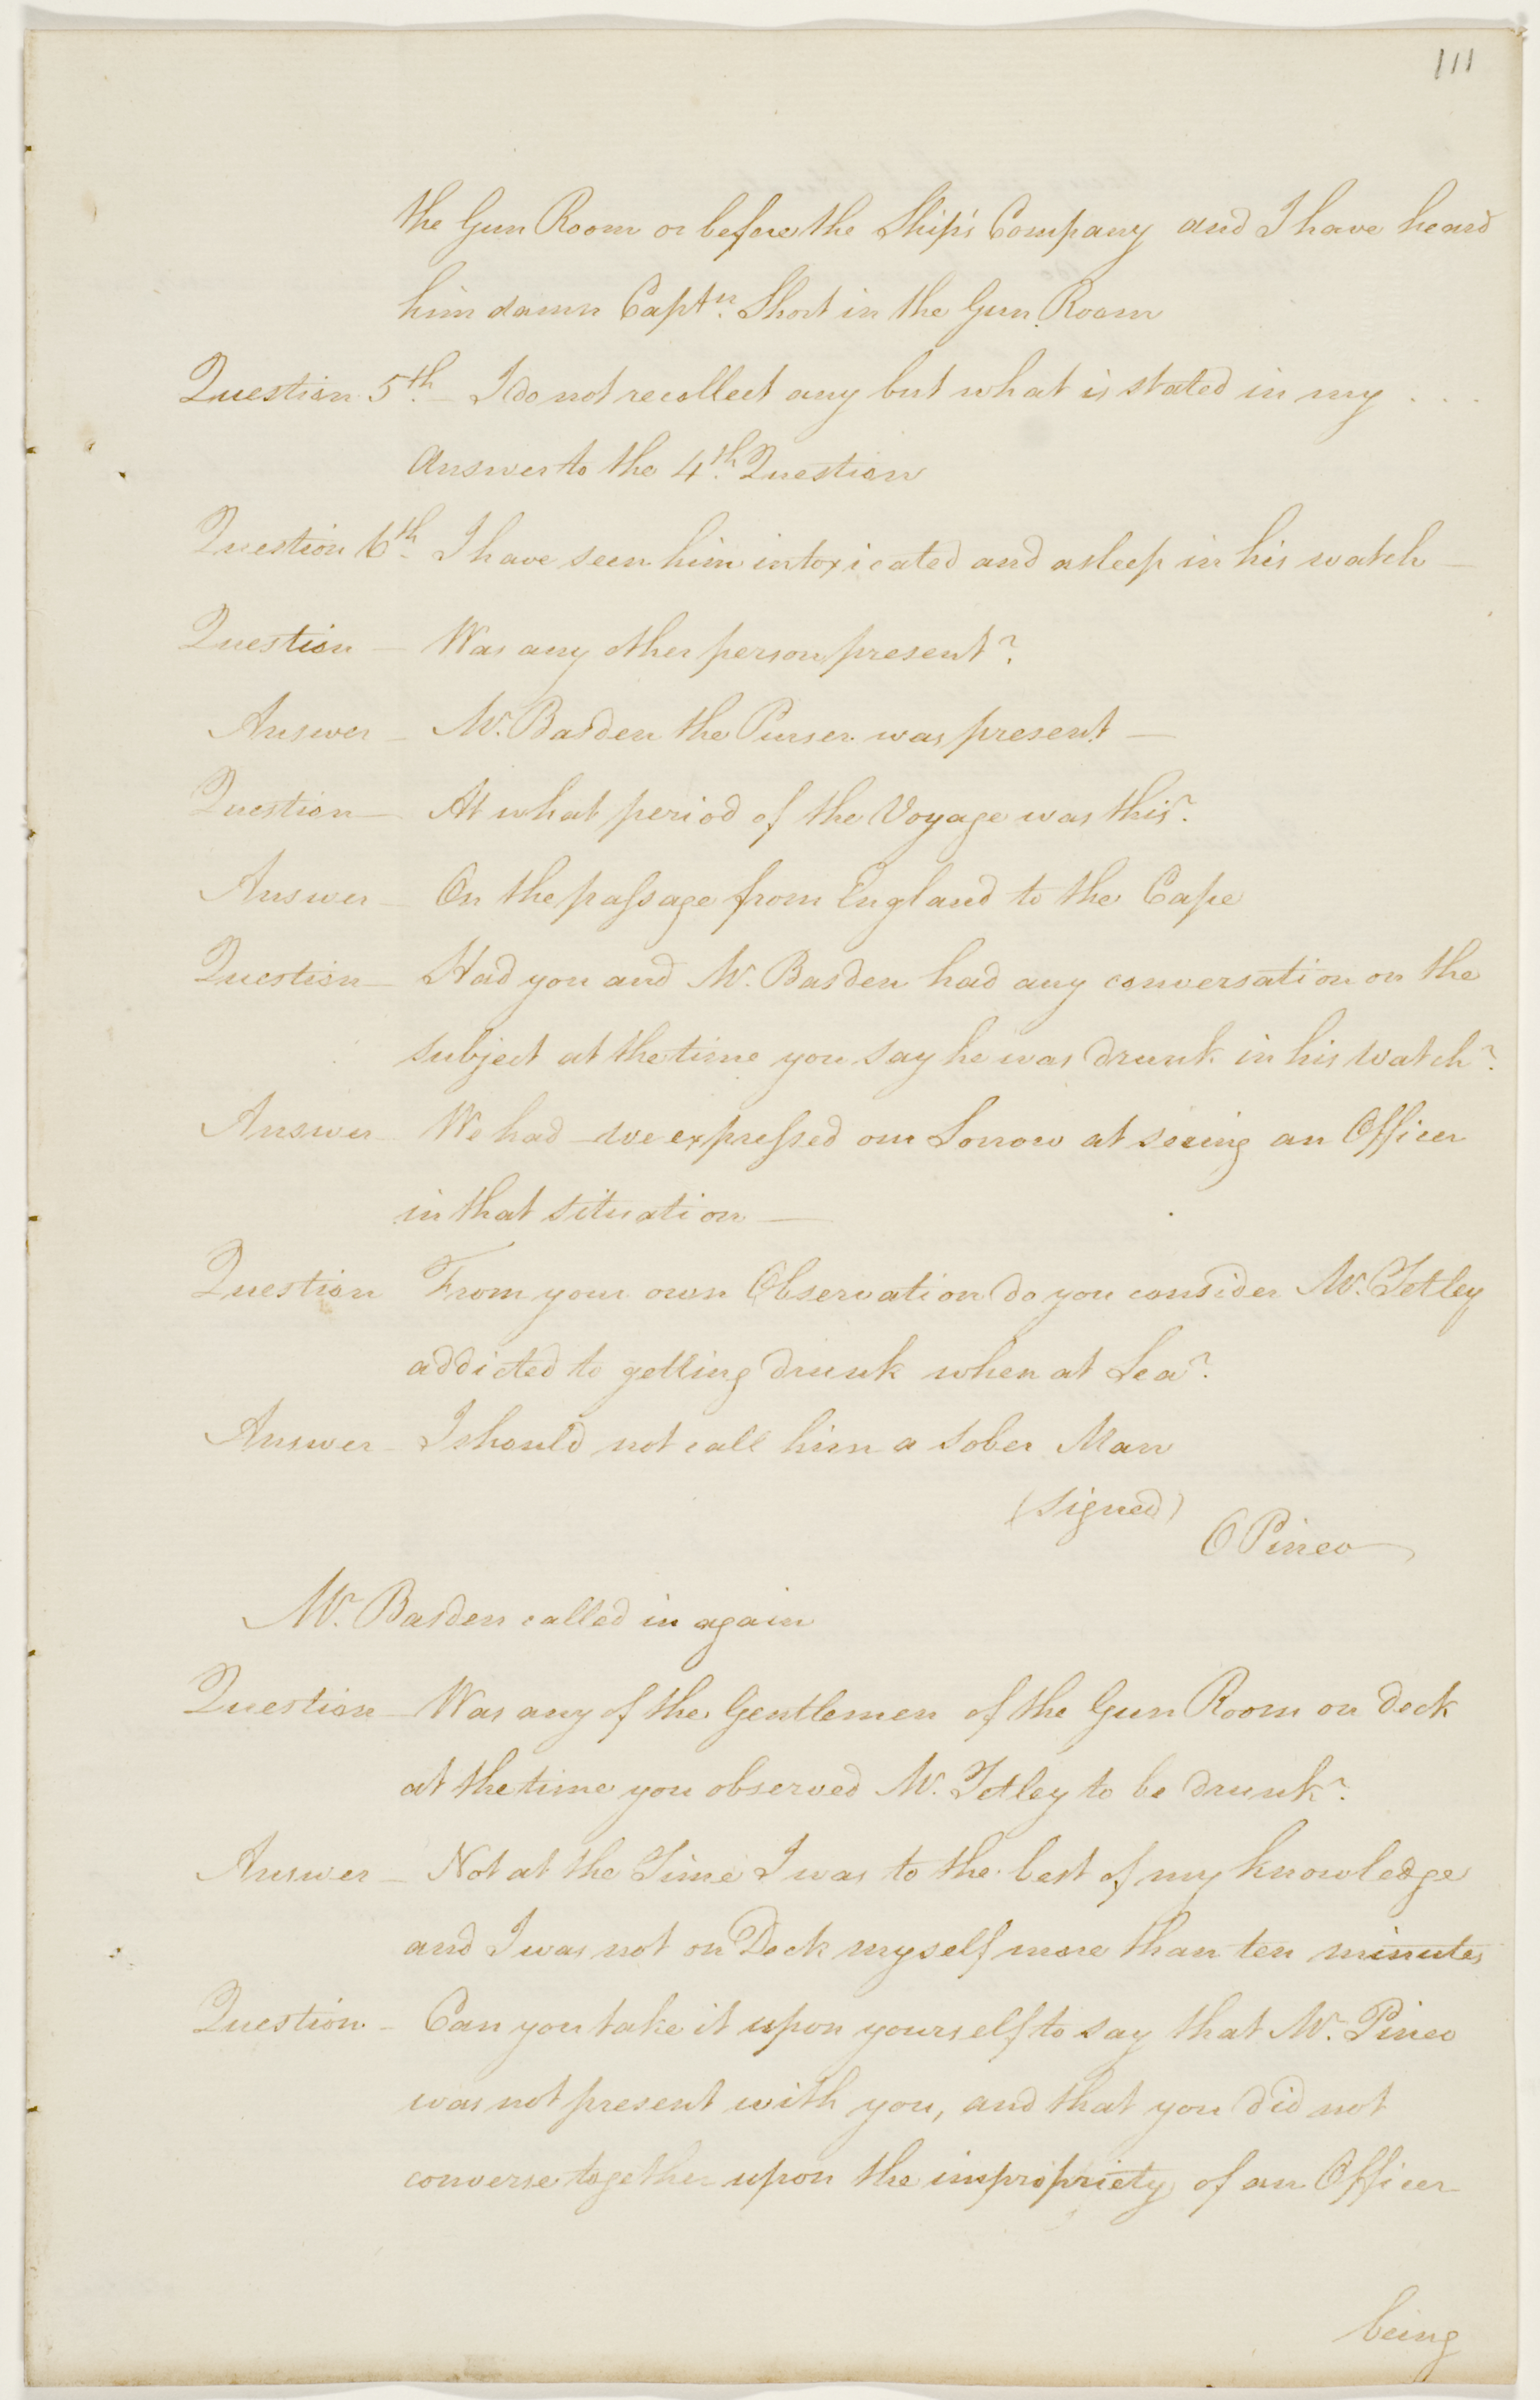 111
the Gun Room or before the Ship's Company and I have heard
him damn Captn. Short in the Gun Room
Question 5th. — I do not recollect any but what is stated in my . . .
Answer to the 4th. Question
Question 6th I have seen him intoxicated and asleep in his watch —
Question — Was any other person present?
Answer — Mr. Basden the Purser was present —
Question — At what period of the Voyage was this?
Answer — On the passage from England to the Cape
Question — Had you and Mr. Basden had any conversation on the
subject at the time you say he was drunk in his Watch?
Answer — We had — we expressed our Sorrow at seeing an Officer
in that situation —
Question From your own Observation do you consider Mr. Tetley
addicted to getting drunk when at Sea?
Answer — I should not call him a sober Man
(signed)
O Pineo
Mr. Basden called in again
Question — Was any of the Gentlemen of the Gun Room on deck
at the time you observed Mr. Tetley to be drunk?
Answer — Not at the Time I was to the best of my knowledge
and I was not on Deck myself more than ten minutes
Question — Can you take it upon yourself to say that Mr. Pineo
was not present with you, and that you did not
converse together upon the impropriety of an Officer
being